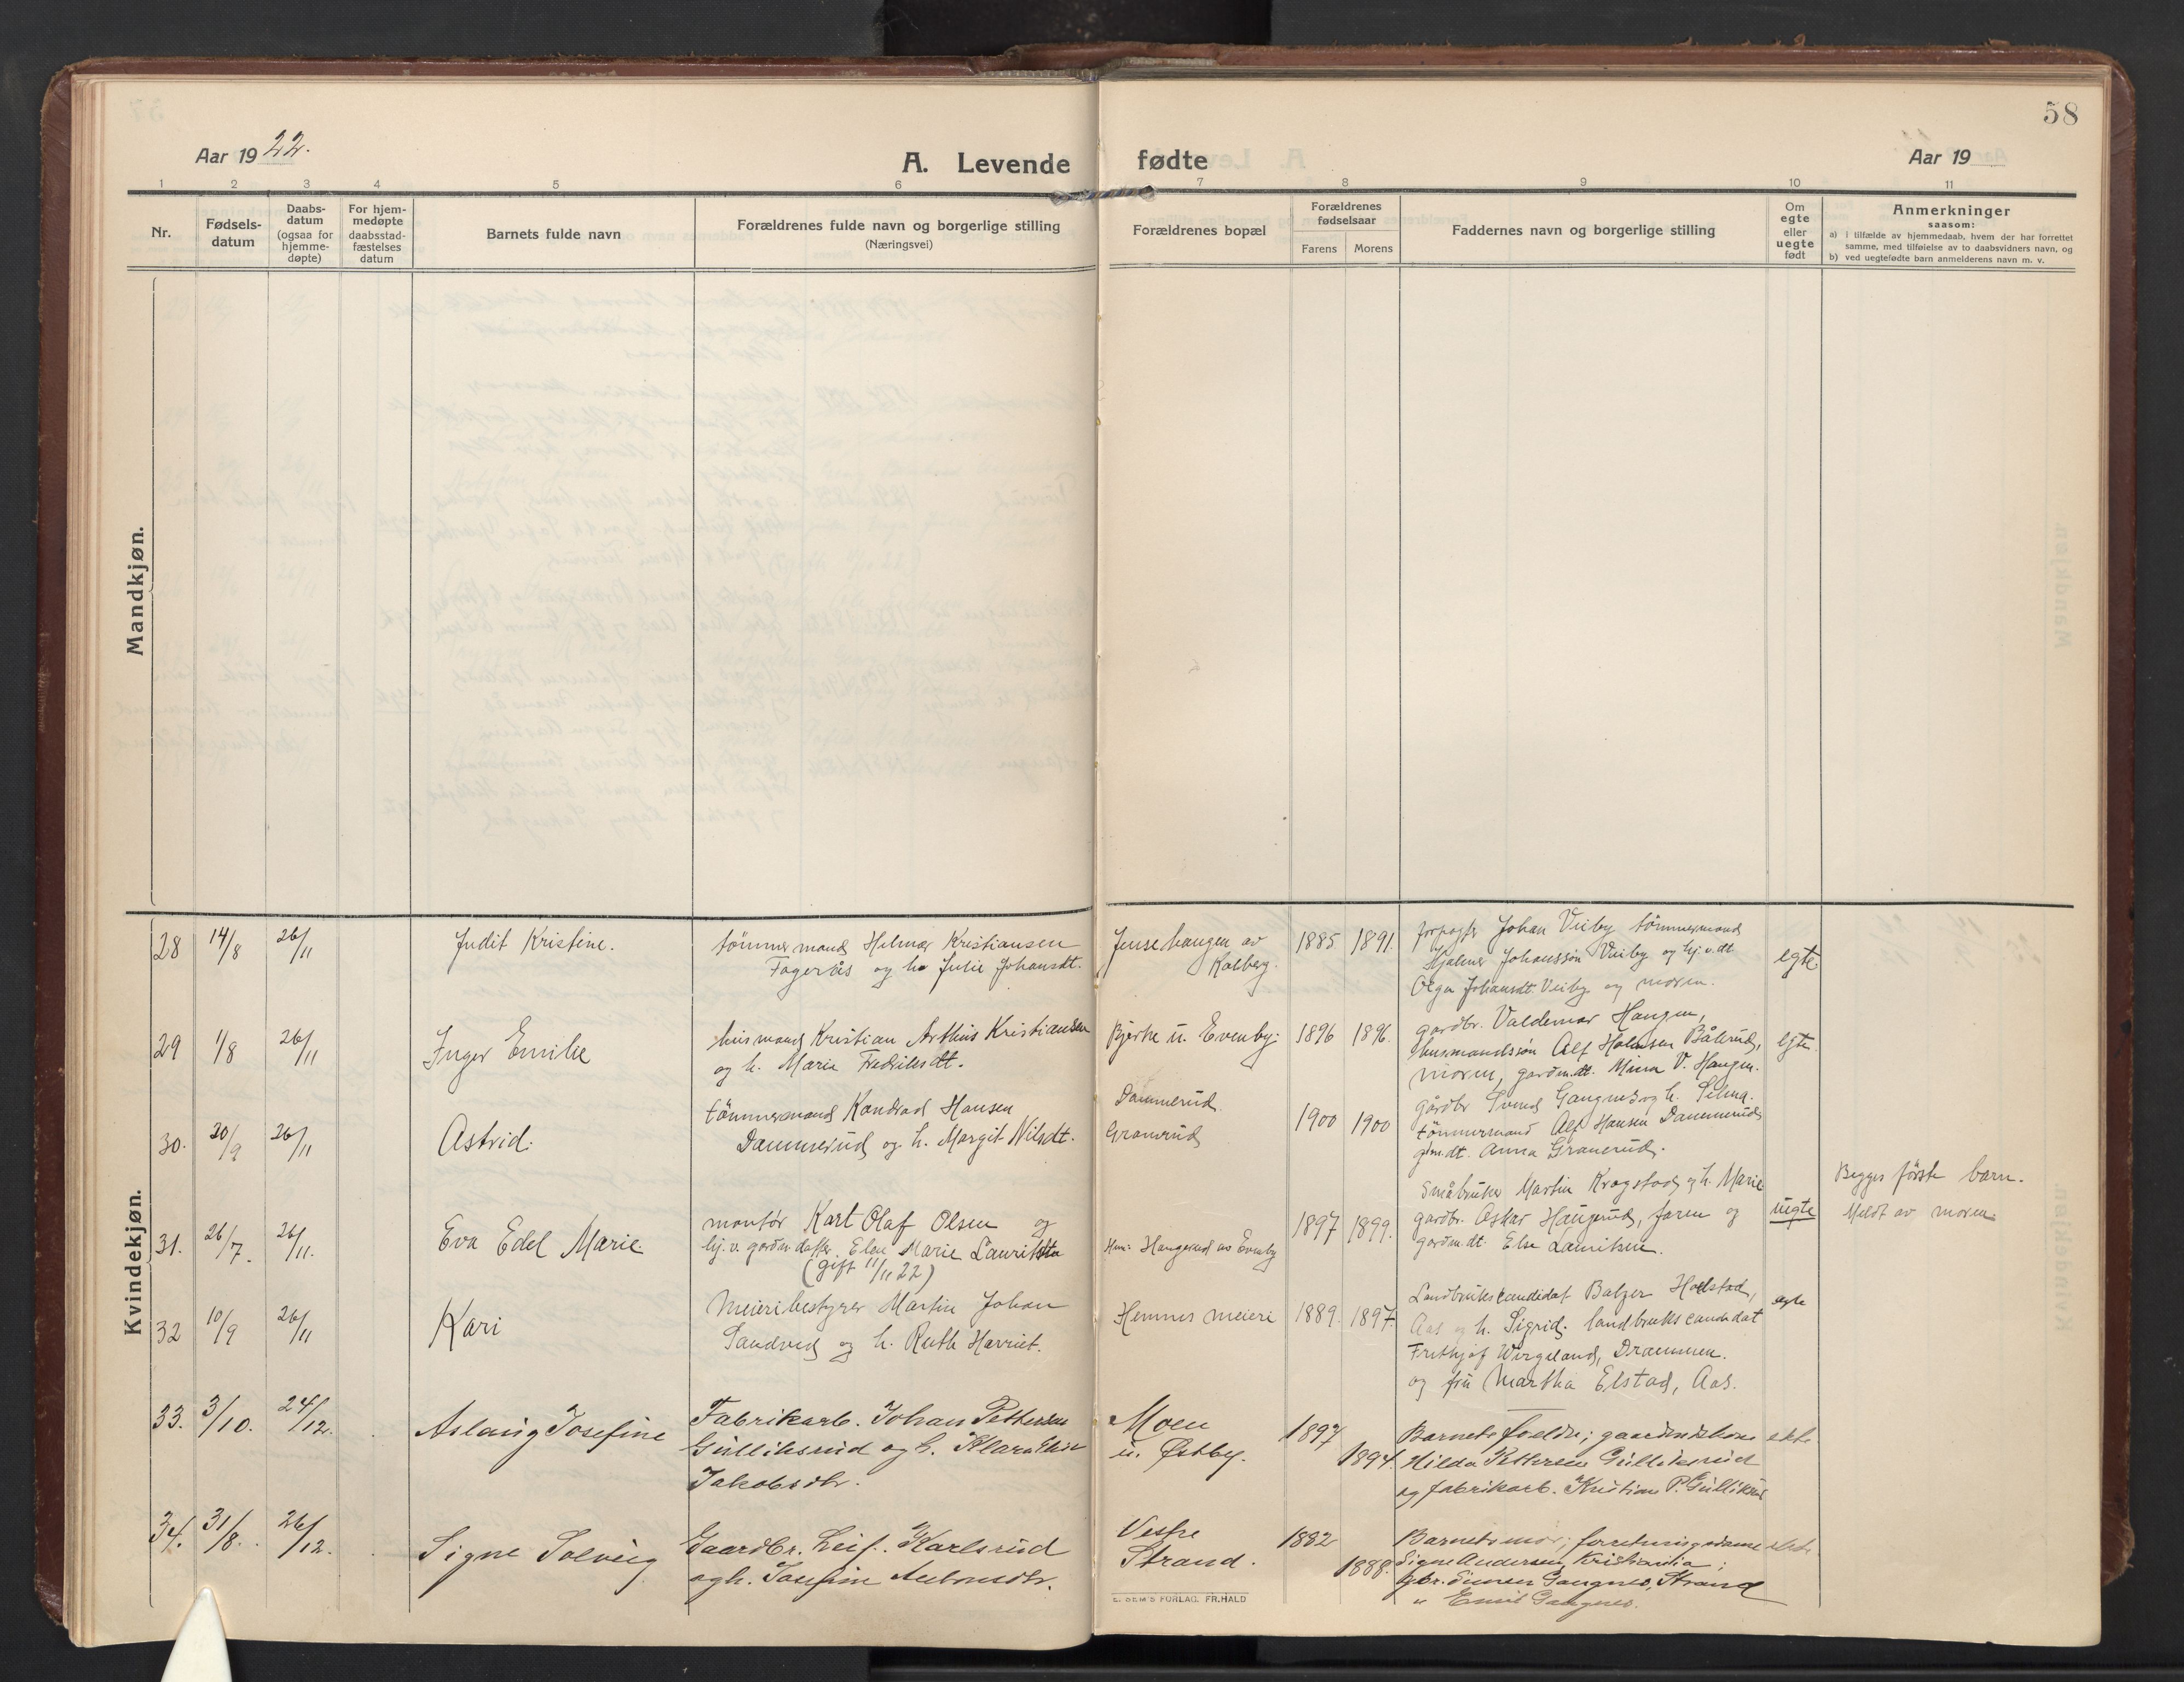 58
Aar 19 22.
A. Levende fødte
Aar 19
1 2 3 4 5 6 7 8 9 10 11
Nr.
Fødsels-
datum
Daabs-
datum
(ogsaa for
hjemme-
døpte)
For hjem-
medøpte
daabsstad-
fæstelses
datum
Barnets fulde navn
Forældrenes fulde navn og borgerlige stilling
(Næringsvei)
Forældrenes bopæl
Forældrenes
fødselsaar
Farens Morens
Faddernes navn og borgerlige stilling
Om
egte
eller
uegte
født
Anmerkninger
saasom:
a) i tilfælde av hjemmedaab, hvem der har forrettet
samme, med tilføielse av to daabsvidners navn, og
b) ved uegtefødte barn anmelderens navn m. v.
Mandkjøn.
Kvindekjøn.
28 14/8 26/11 Judit Kristine.
tömmermand Helmer Kristiansen
Fageraas og h. Julie Johansdt.
Jensehaugen av
Kolberg.
1885 1891.
forpagter Johan Veiby tömmermand
Hjalmer Johanssön Veiby og hj.v.dt.
Olga Johansdt. Veiby og moren.
egte.
29 1/8 26/11 Inger Emilie
husmand Kristian Arthur Kristiansen
og h. Marie Fredriksdt.
Bjerke u. Evenby.
1896 1896.
gardbr. Valdemar Haugen,
husmandssön Alf Hansen Båterud,
moren, gardm.dt. Mina V. Haugen.
egte.
30. 20/9 26/11 Astrid.
tömmermand Kondrad Hansen
Dammerud og h. Margit Nilsdt.
Dammerud
Granerud
1900 1900
gårdbr Svend Gangnes og h. Selma.
tömmermand Alf Hansen Dammerud
gdm.dt. Anna Granerud.
31. 26/7. 26/11. Eva Edel Marie.
montör Kart Olaf Olsen og
hj.v. gardm.datter Elen Marie Lauritsdtr
(gift 11/11 22)
Haugerud av Evenby
1897 1899.
Småbruker Martin Krogstad og h. Marie
gardbr. Askar Haugerud, faren og
gardm.dt. Else Lauritsen.
uegte
Begges förste barn.
Meldt av moren.
32 10/9 26/11 Kari
Meieribestyrer Martin Johan
Sandved og h. Ruth Harriet.
Hemnes meieri
1889. 1897.
Landbrukscandidat Balzer Holstad,
Aas og h. Sigrid. landbrukscandidat
Frithjof Wergeland, Drammen.
og fru Martha Elstad, Aas.
egte
33. 3/10. 24/12. Aslaug Josefine
Fabrikarb. Johan Pettersen
Gulliksrud og h. Klara Elise
Jakobsdtr.
Moen
u. Østby.
1897
1894.
Barnets foreldre; gaardmandskone
Hilda Pettersen Gulliksrud
og fabrikarb. Kristian P. Gulliksrud
ekte
34. 31/8. 26/12. Signe Solveig
Gaardbr. Leif Karlsrud
og h. Josefine Antonsdtr.
Vestre
Strand.
1882
1888.
Barnets mor; forretningsdame
Signe Andersen, Kristiania;
gbr. Simen Gangnes, Strand
" Emil Gangnes.
ekte
E. SEM'S FORLAG, FR.HALD